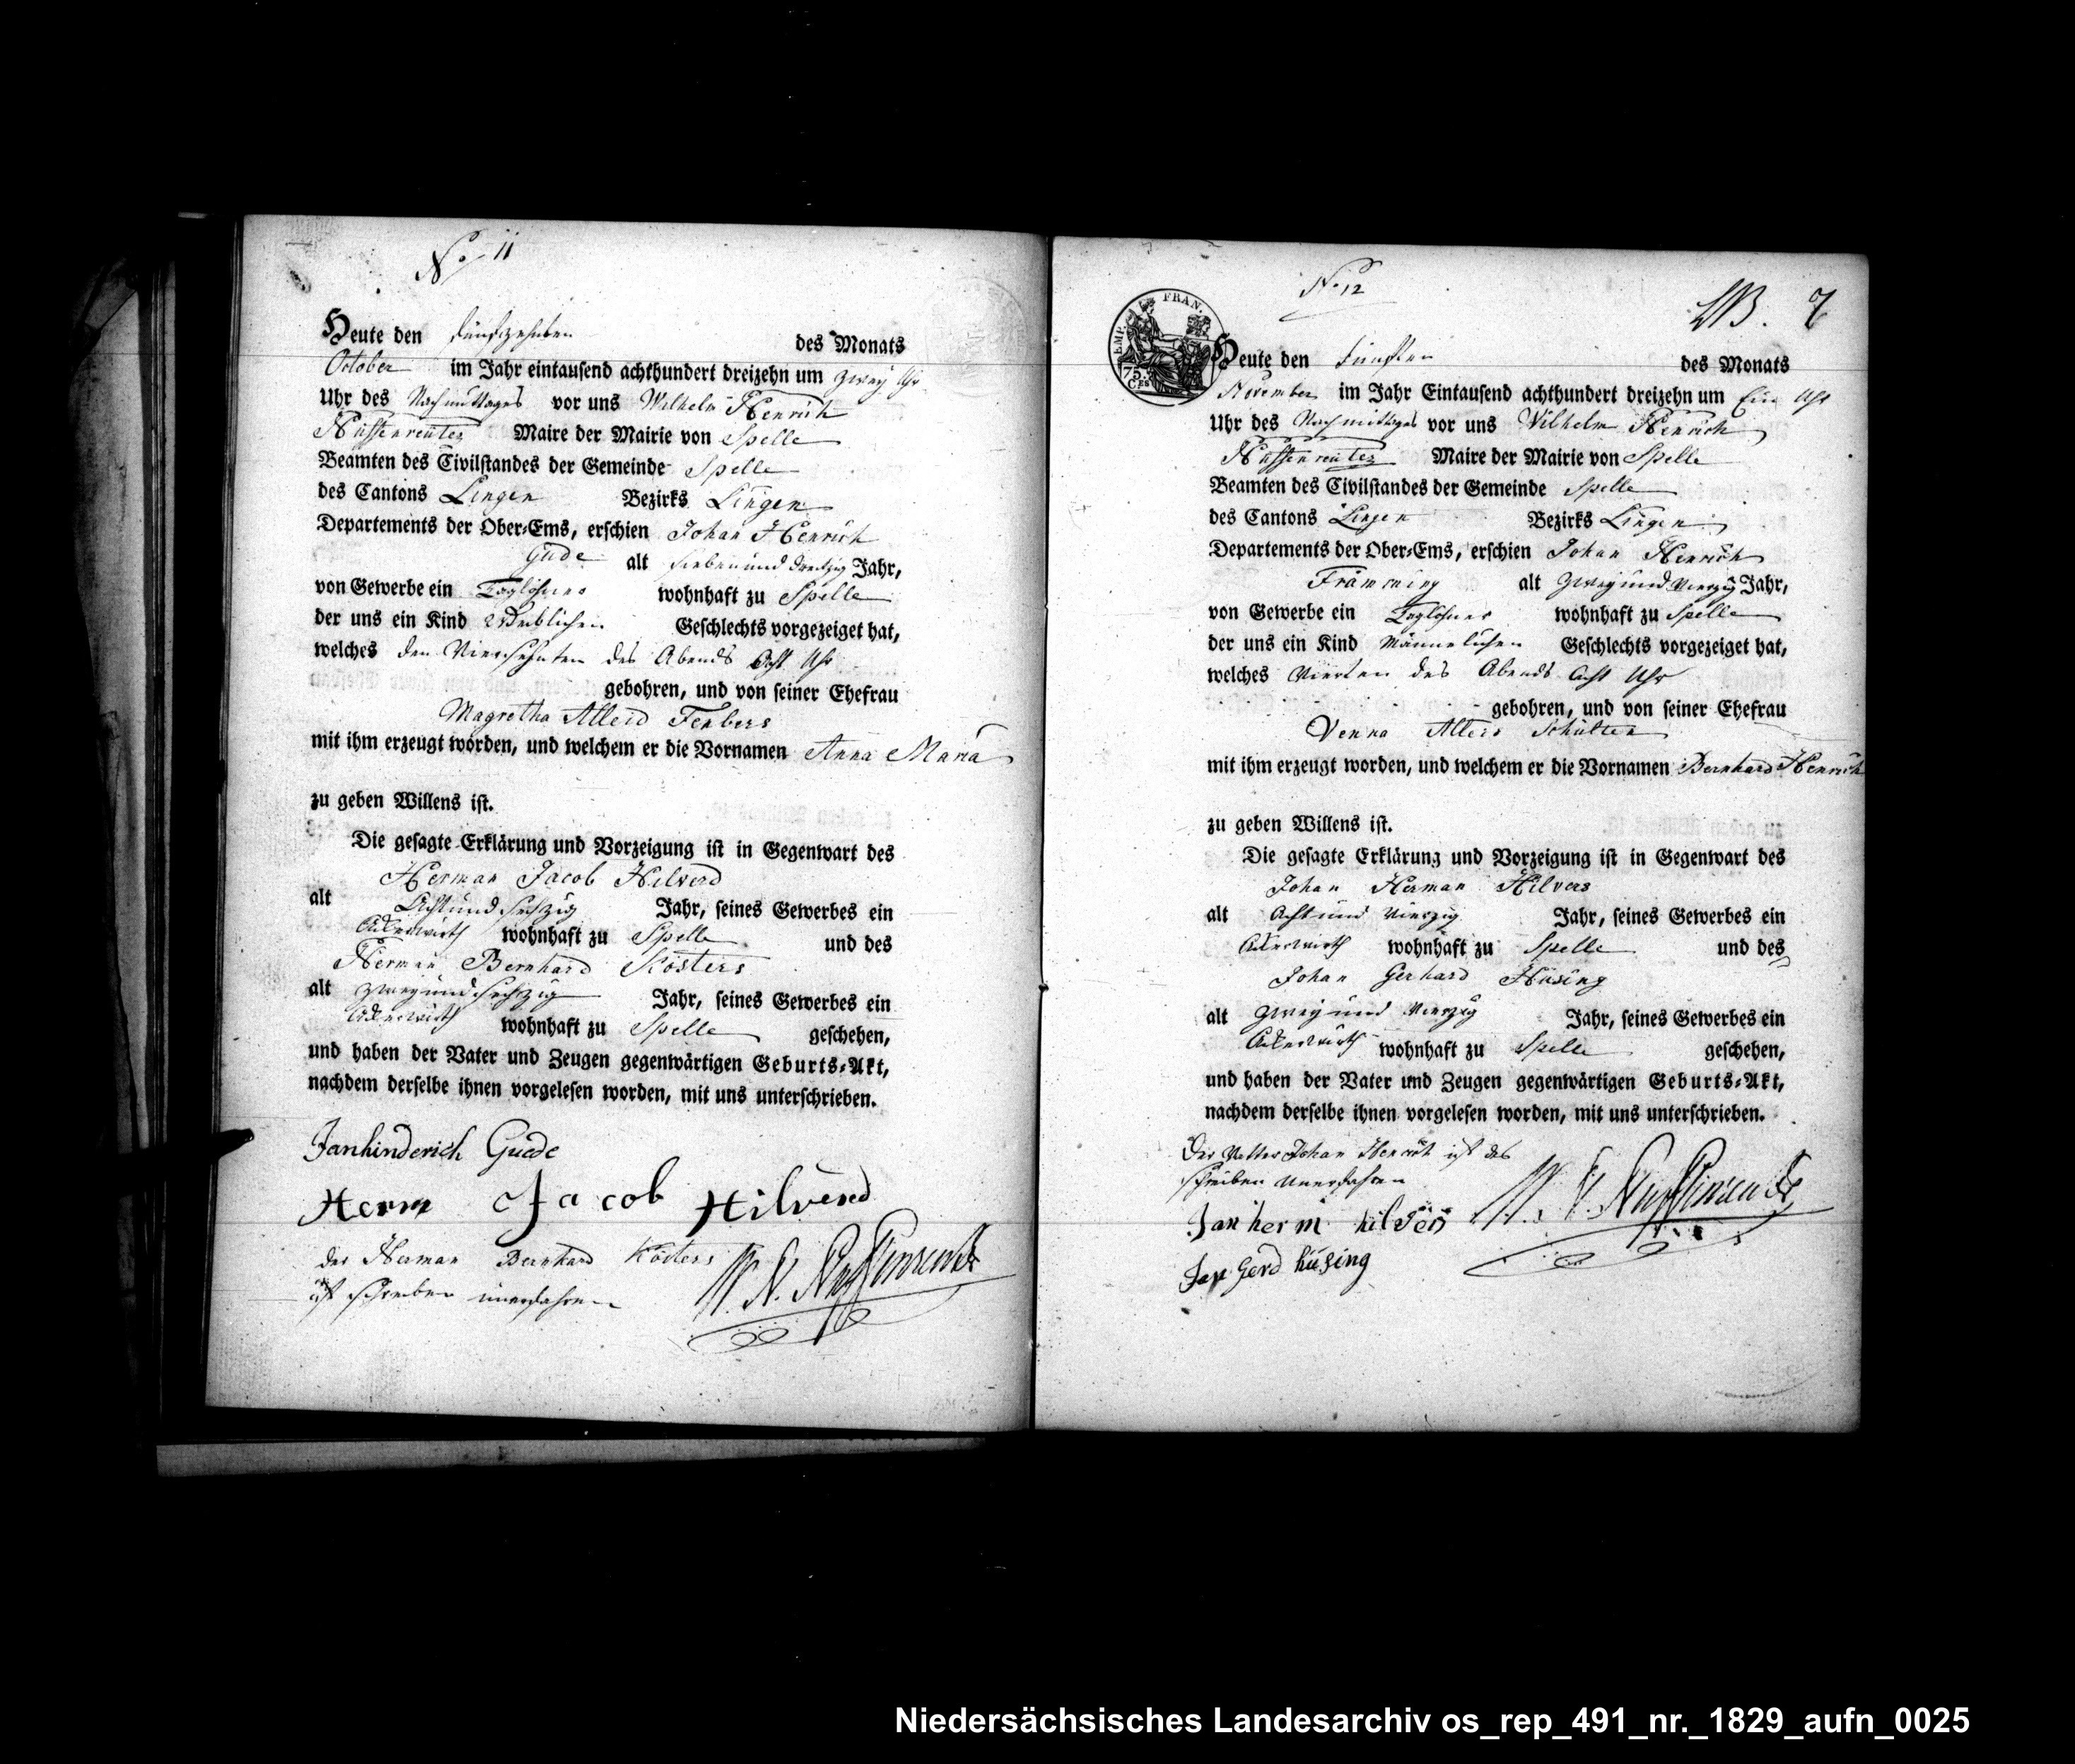 No 11
Heute den fünfzehnten des Monats
October im Jahr eintausend achthundert dreizehn um zwey Uhr
Uhr des Nachmittages vor uns Wilhelm Henrich
Maire der Mairie von Spelle
Beamten des Civilstandes der Gemeinde Spelle
des Cantons Lingen Bezirks Lingen
Departements der Ober-Ems, erschien Johan Henrich
Gude alt sieben und dreißig Jahr,
von Gewerbe ein Taglöhner wohnhaft zu Spelle
der uns ein Kind Weiblichen Geschlechts vorgezeiget hat,
welches den Vierzehnten des Abends Acht Uhr
gebohren, und von seiner Ehefrau
Magretha Alleid
mit ihm erzeugt worden, und welchem er die Vornamen Anna Maria
zu geben Willens ist.
Die gesagte Erklärung und Vorzeigung ist in Gegenwart des
Herman Jacob Hilverd
alt Acht und sechzig Jahr, seines Gewerbes ein
Ackerwirth wohnhaft zu Spelle und des
Herman Bernhard Kösters
alt zwey und sechzig Jahr, seines Gewerbes ein
Ackerwirth wohnhaft zu Spelle geschehen,
und haben der Vater und Zeugen gegenwärtigen Geburts-Akt,
nachdem derselbe ihnen vorgelesen worden, mit uns unterschrieben.
Janhinderich Guede
Herm Jacob Hilverd
der Herman Bernhard Kösters
ist schreiben unerfahren
No 12
7
EMP. FRAN.
75.
CES
Heute den fünften des Monats
November im Jahr Eintausend achthundert dreizehn um Ein Uhr
Uhr des Nachmittages vor uns Wilhelm Henrich
Maire der Mairie von Spelle
Beamten des Civilstandes der Gemeinde Spelle
des Cantons Lingen Bezirks Lingen
Departements der Ober-Ems, erschien Johan Henrich
alt zwey und vierzig Jahr,
von Gewerbe ein Taglöhner wohnhaft zu Spelle
der uns ein Kind Männlichen Geschlechts vorgezeiget hat,
welches vierten des Abends Acht Uhr
gebohren, und von seiner Ehefrau
Venna Schulten
mit ihm erzeugt worden, und welchem er die Vornamen Bernhard Henrich
zu geben Willens ist.
Die gesagte Erklärung und Vorzeigung ist in Gegenwart des
Johan Herman Hilvers
alt Acht und vierzig Jahr, seines Gewerbes ein
Ackerwirth wohnhaft zu Spelle und des
Johan Gerhard Hüsing
alt zwey und vierzig Jahr, seines Gewerbes ein
Ackerwirth wohnhaft zu Spelle geschehen,
und haben der Vater und Zeugen gegenwärtigen Geburts-Akt,
nachdem derselbe ihnen vorgelesen worden, mit uns unterschrieben.
Der Vatter Johan Henrich ist des
schreiben unerfahren
Jan herm hilvers
Jan Gerd hüsing
Niedersächsisches Landesarchiv os_rep_491_nr._1829_aufn_0025